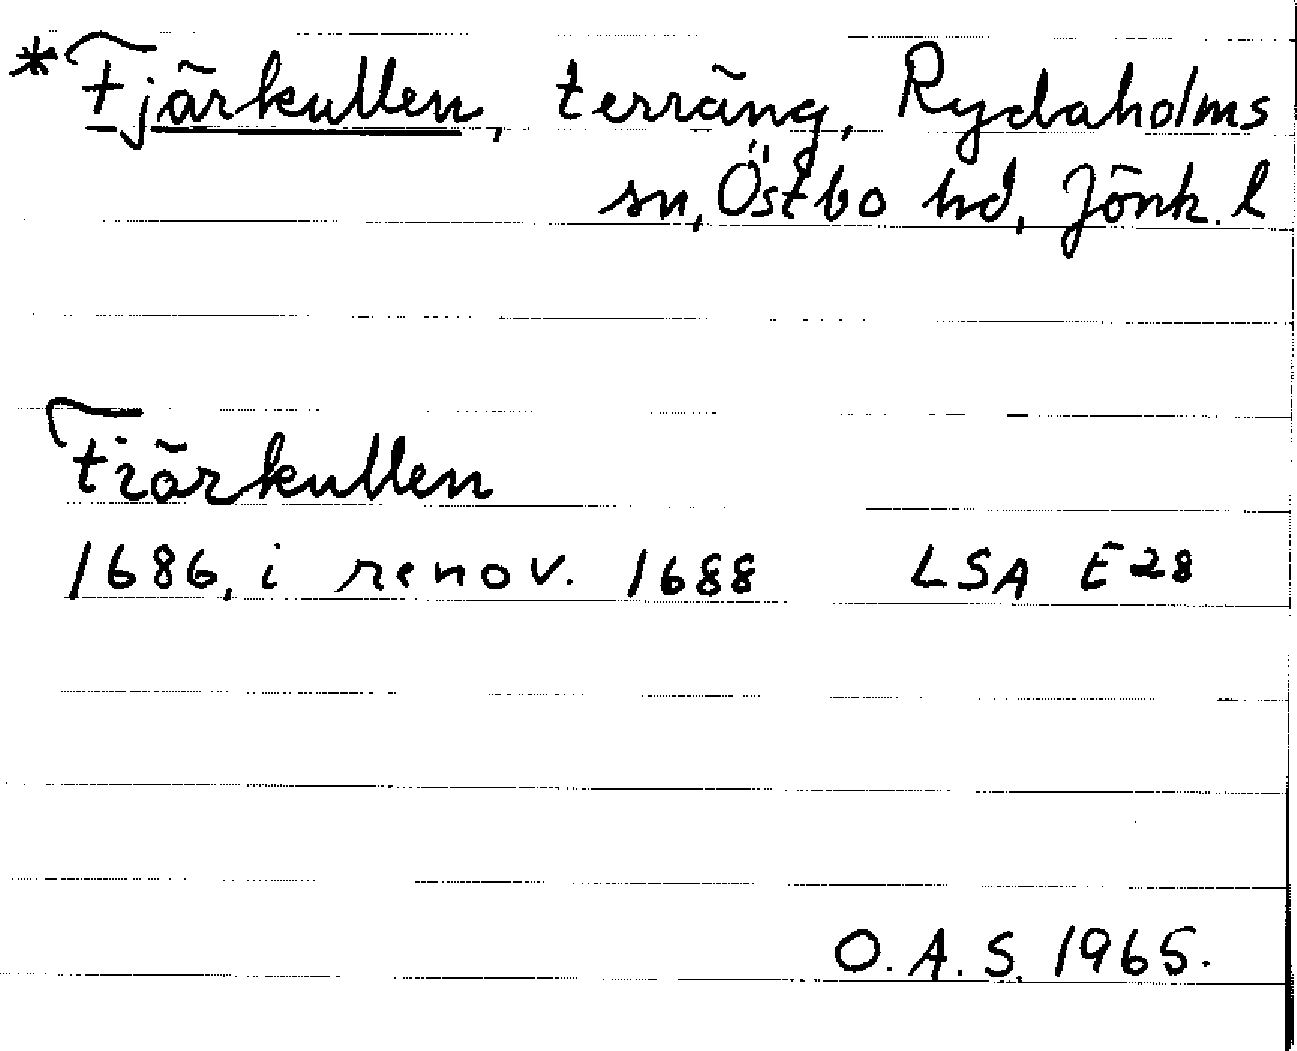 *Fjärkullen, terräng, Rydaholms
sn, Östbo hd, Jönk. l
Fiärkullen
1686, i renov. 1688 LSA E28
O.A.S. 1965.